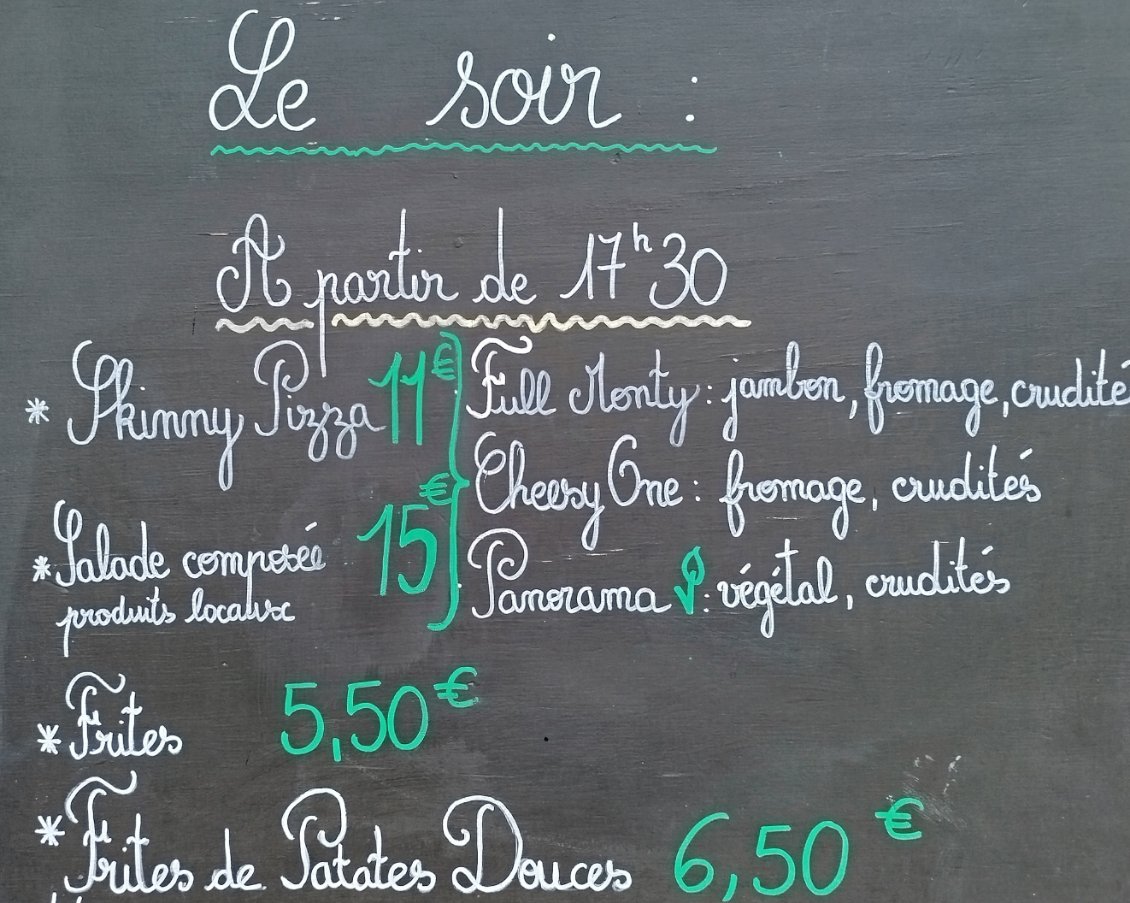 Le soir :
A partir de 17h30
* Skinny Pizza 11€ Full Monty : jambon, fromage, crudité
Cheesy One : fromage, crudités
* Salade composée 15€ Panorama : végétal, crudités
produits locaux
* Frites 5,50€
* Frites de Patates Douces 6,50€